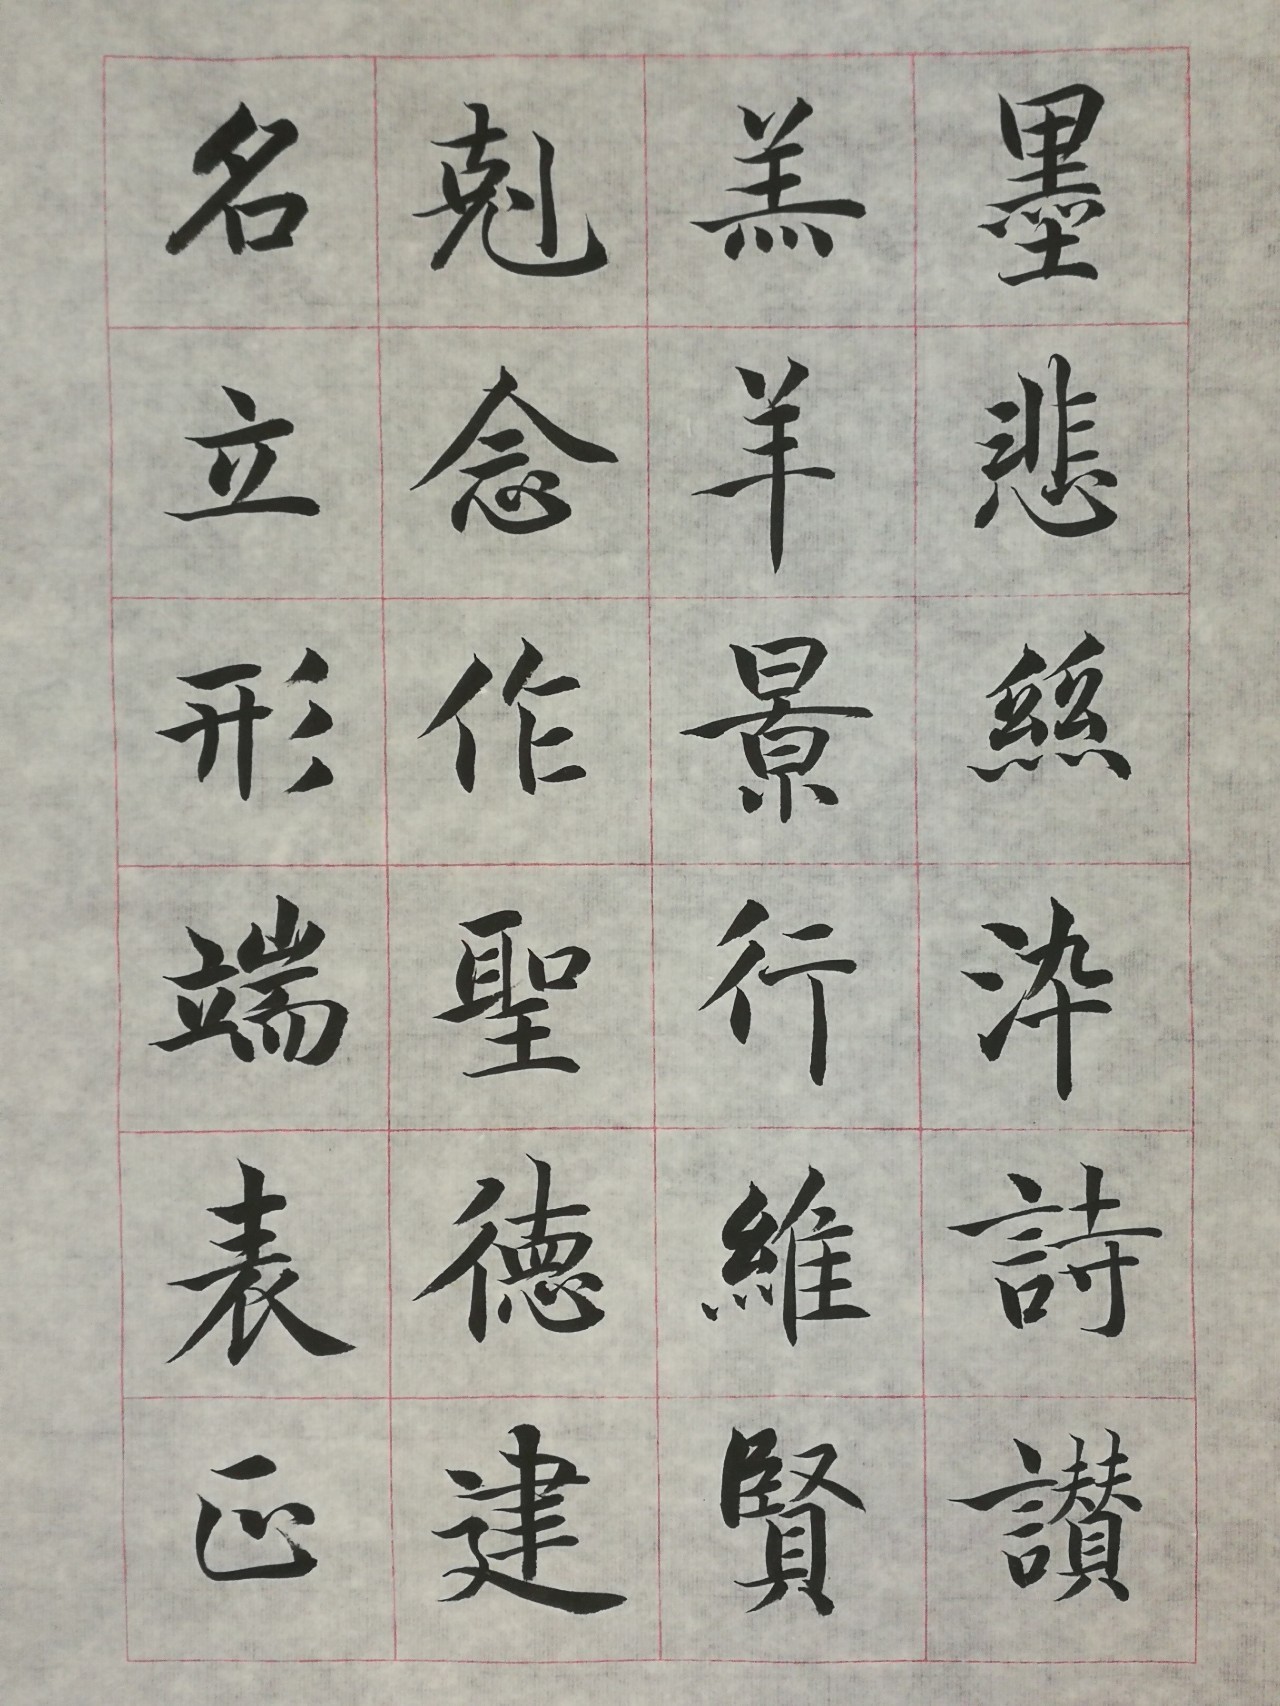 墨悲絲染詩讃
羔羊景行維賢
剋念作聖德建
名立形端表正